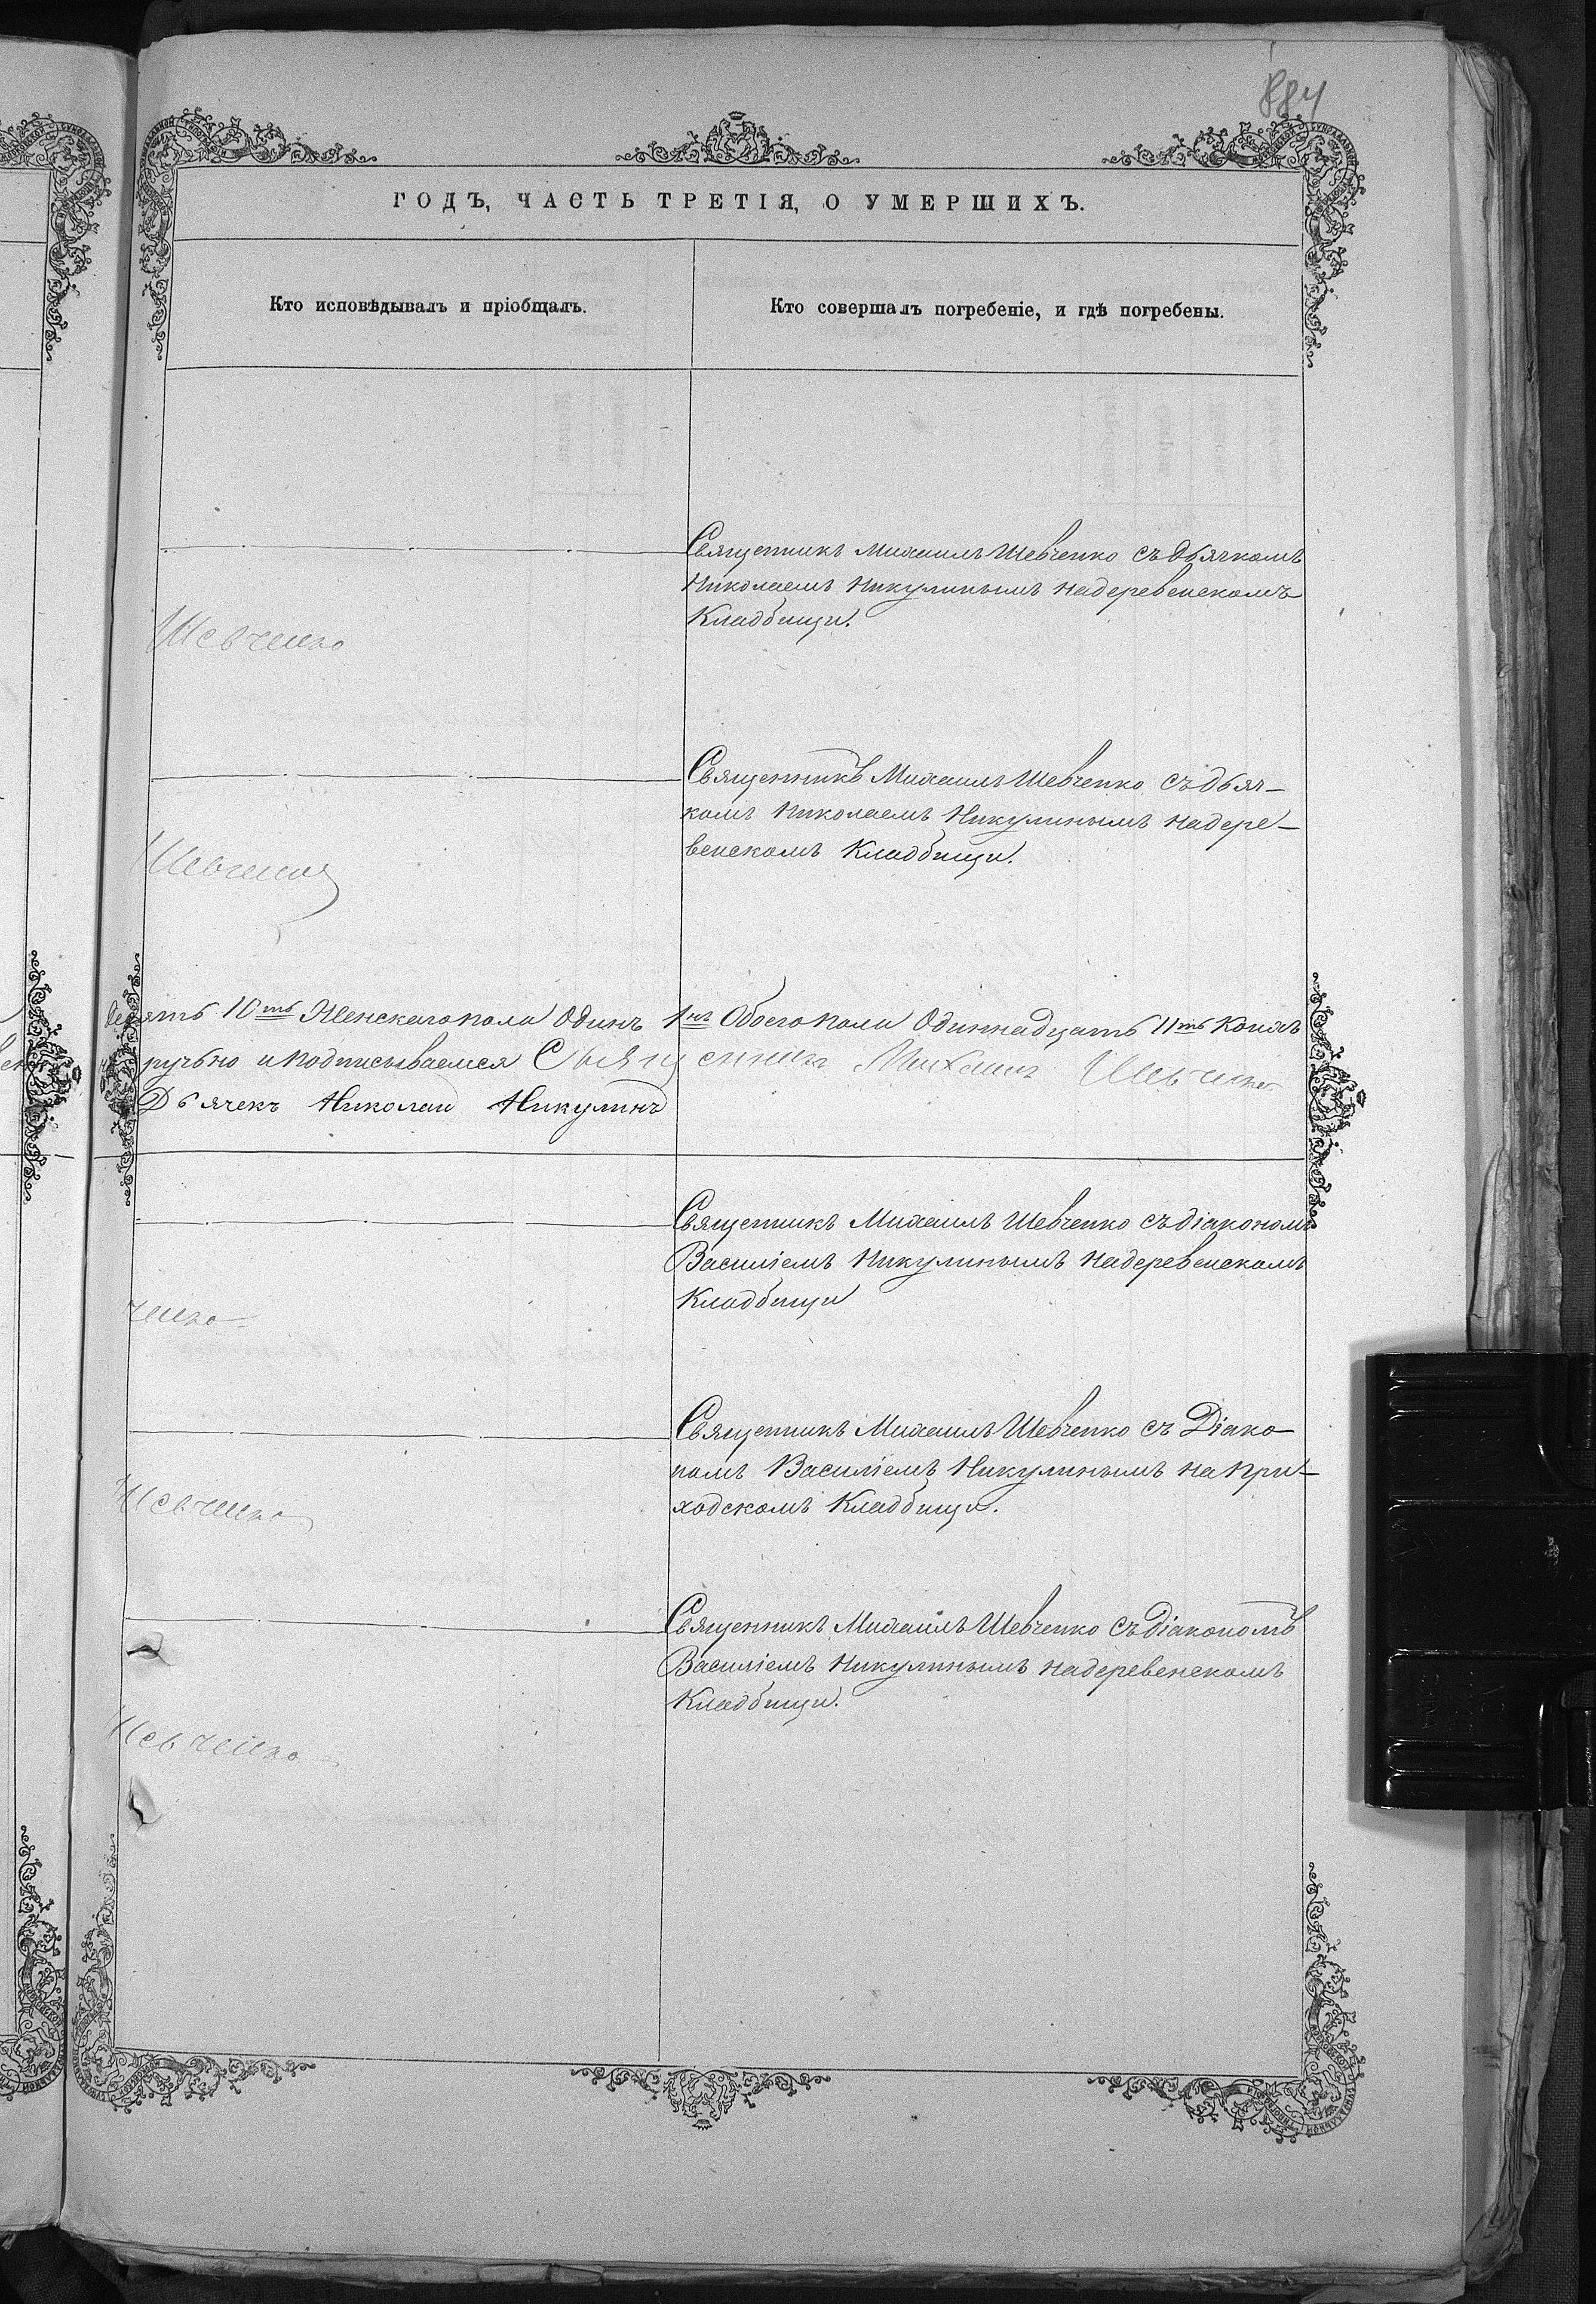 884
ГОДЪ, ЧАСТЬ ТРЕТІЯ, О УМЕРШИХЪ.
Кто исповѣдывалъ и пріобщалъ.
Кто совершалъ погребеніе, и гдѣ погребены.
Священникъ Михаилъ Шевченко съ дьячкомъ
Николаемъ Никулинымъ на деревенскомъ
Кладбищи.
Шевченко
Священникъ Михаилъ Шевченко съ дьяч-
комъ Николаемъ Никулинымъ на дере-
венскомъ Кладбищи.
Шевченко
десять 10ть Женскаго пола Одинъ 1нъ Обоего пола Одиннадцать 11ть Коихъ
ручьно и подписываемся Священникъ Михаилъ Шевченко
Дьячекъ Николай Никулинъ
Священникъ Михаилъ Шевченко съ діакономъ
Василіемъ Никулинымъ на деревенскомъ
Кладбищи
ченко
Священникъ Михаилъ Шевченко съ Діако
номъ Василіемъ Никулинымъ на При-
ходскомъ Кладбищи.
Шевченко
Священникъ Михаилъ Шевченко съ діакономъ
Василіемъ Никулинымъ на деревенскомъ
Кладбищи.
Шевченко